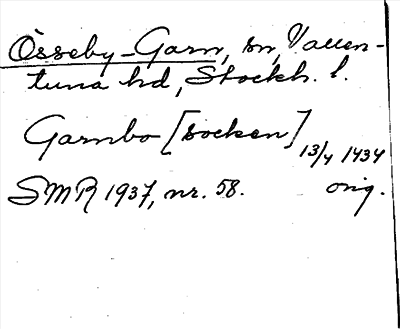 Össeby-Garn, sn, Vallen-
tuna hd, Stockh. l.
Garnbo [socken]
13/4 1434
SMR 1937, nr. 58. orig.